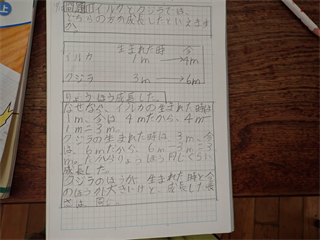 問題 イルカとクジラでは、
どちらの方が成長したといえます
か。
生まれた時 今
イルカ 1m → 4m
クジラ 3m → 6m
りょうほう成長した。
なぜなら、イルカの生まれた時は
1m、今は4mだから、4m-
1m=3m。
クジラの生まれた時は、3m、今
は、6mだから、6m-3m=3
m。だからりょうほう同じくらい
成長した。
クジラのほうが、生まれた時と今
のほうが大きいけど、成長した長
さは、同じ。
上